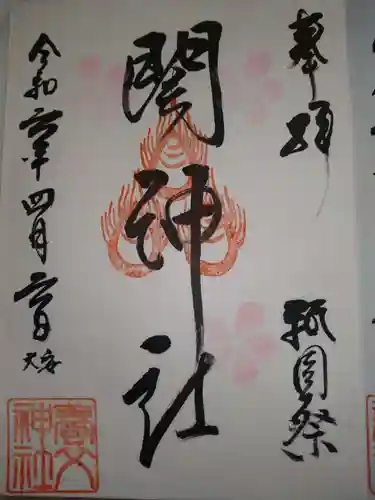 奉拝
祇園祭
関神社
令和六年四月六日
大安
神社